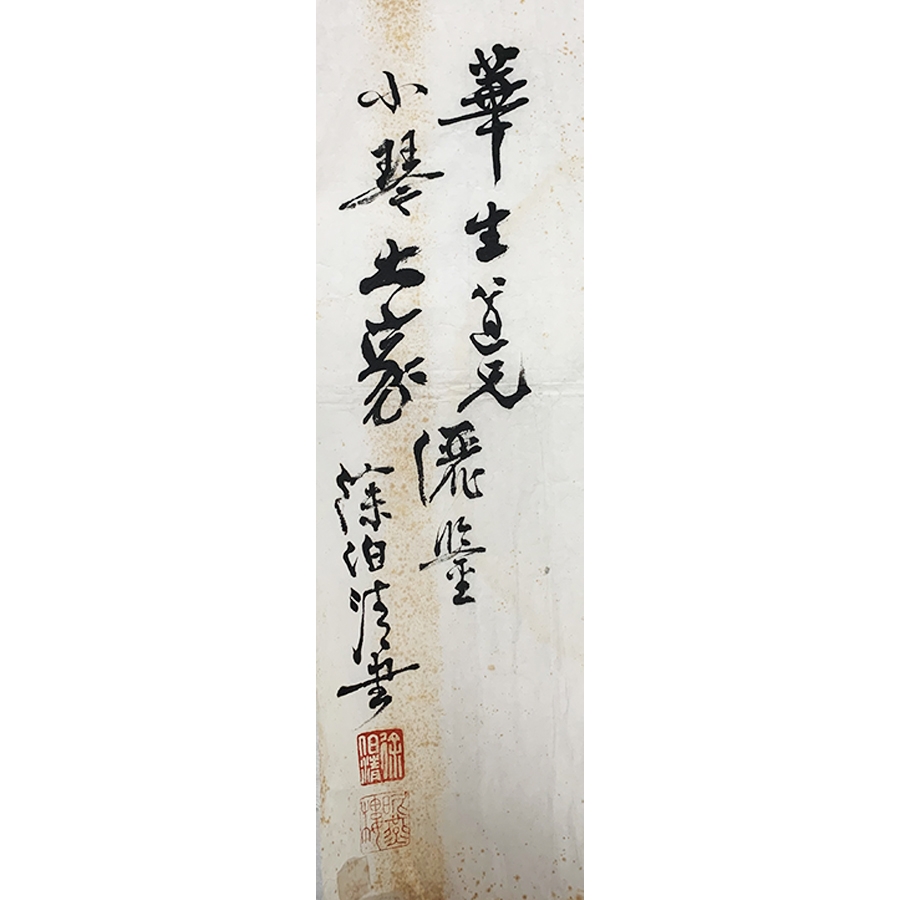 華生道兄儷鑒
小琴大家徐伯清書
徐伯清